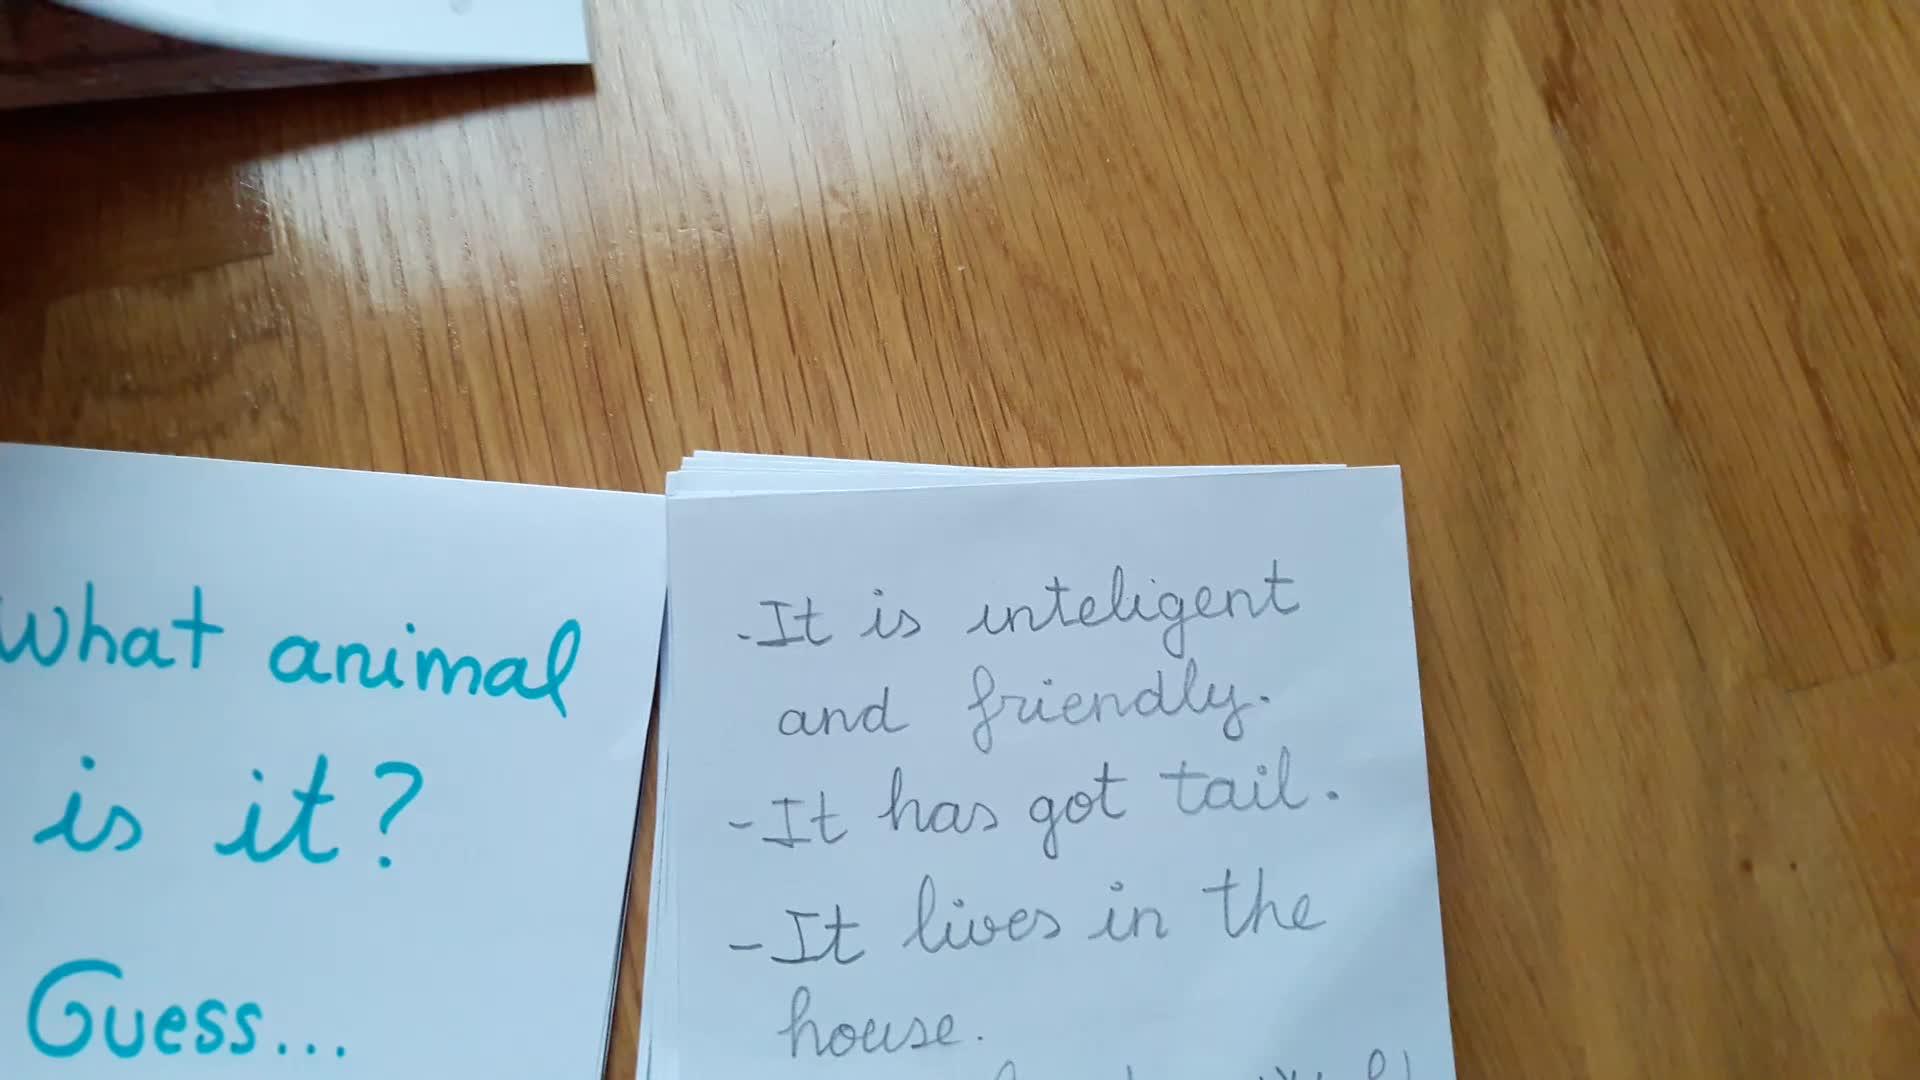 What animal
is it?
Guess...
-It is inteligent
and friendly.
-It has got tail.
-It lives in the
house.